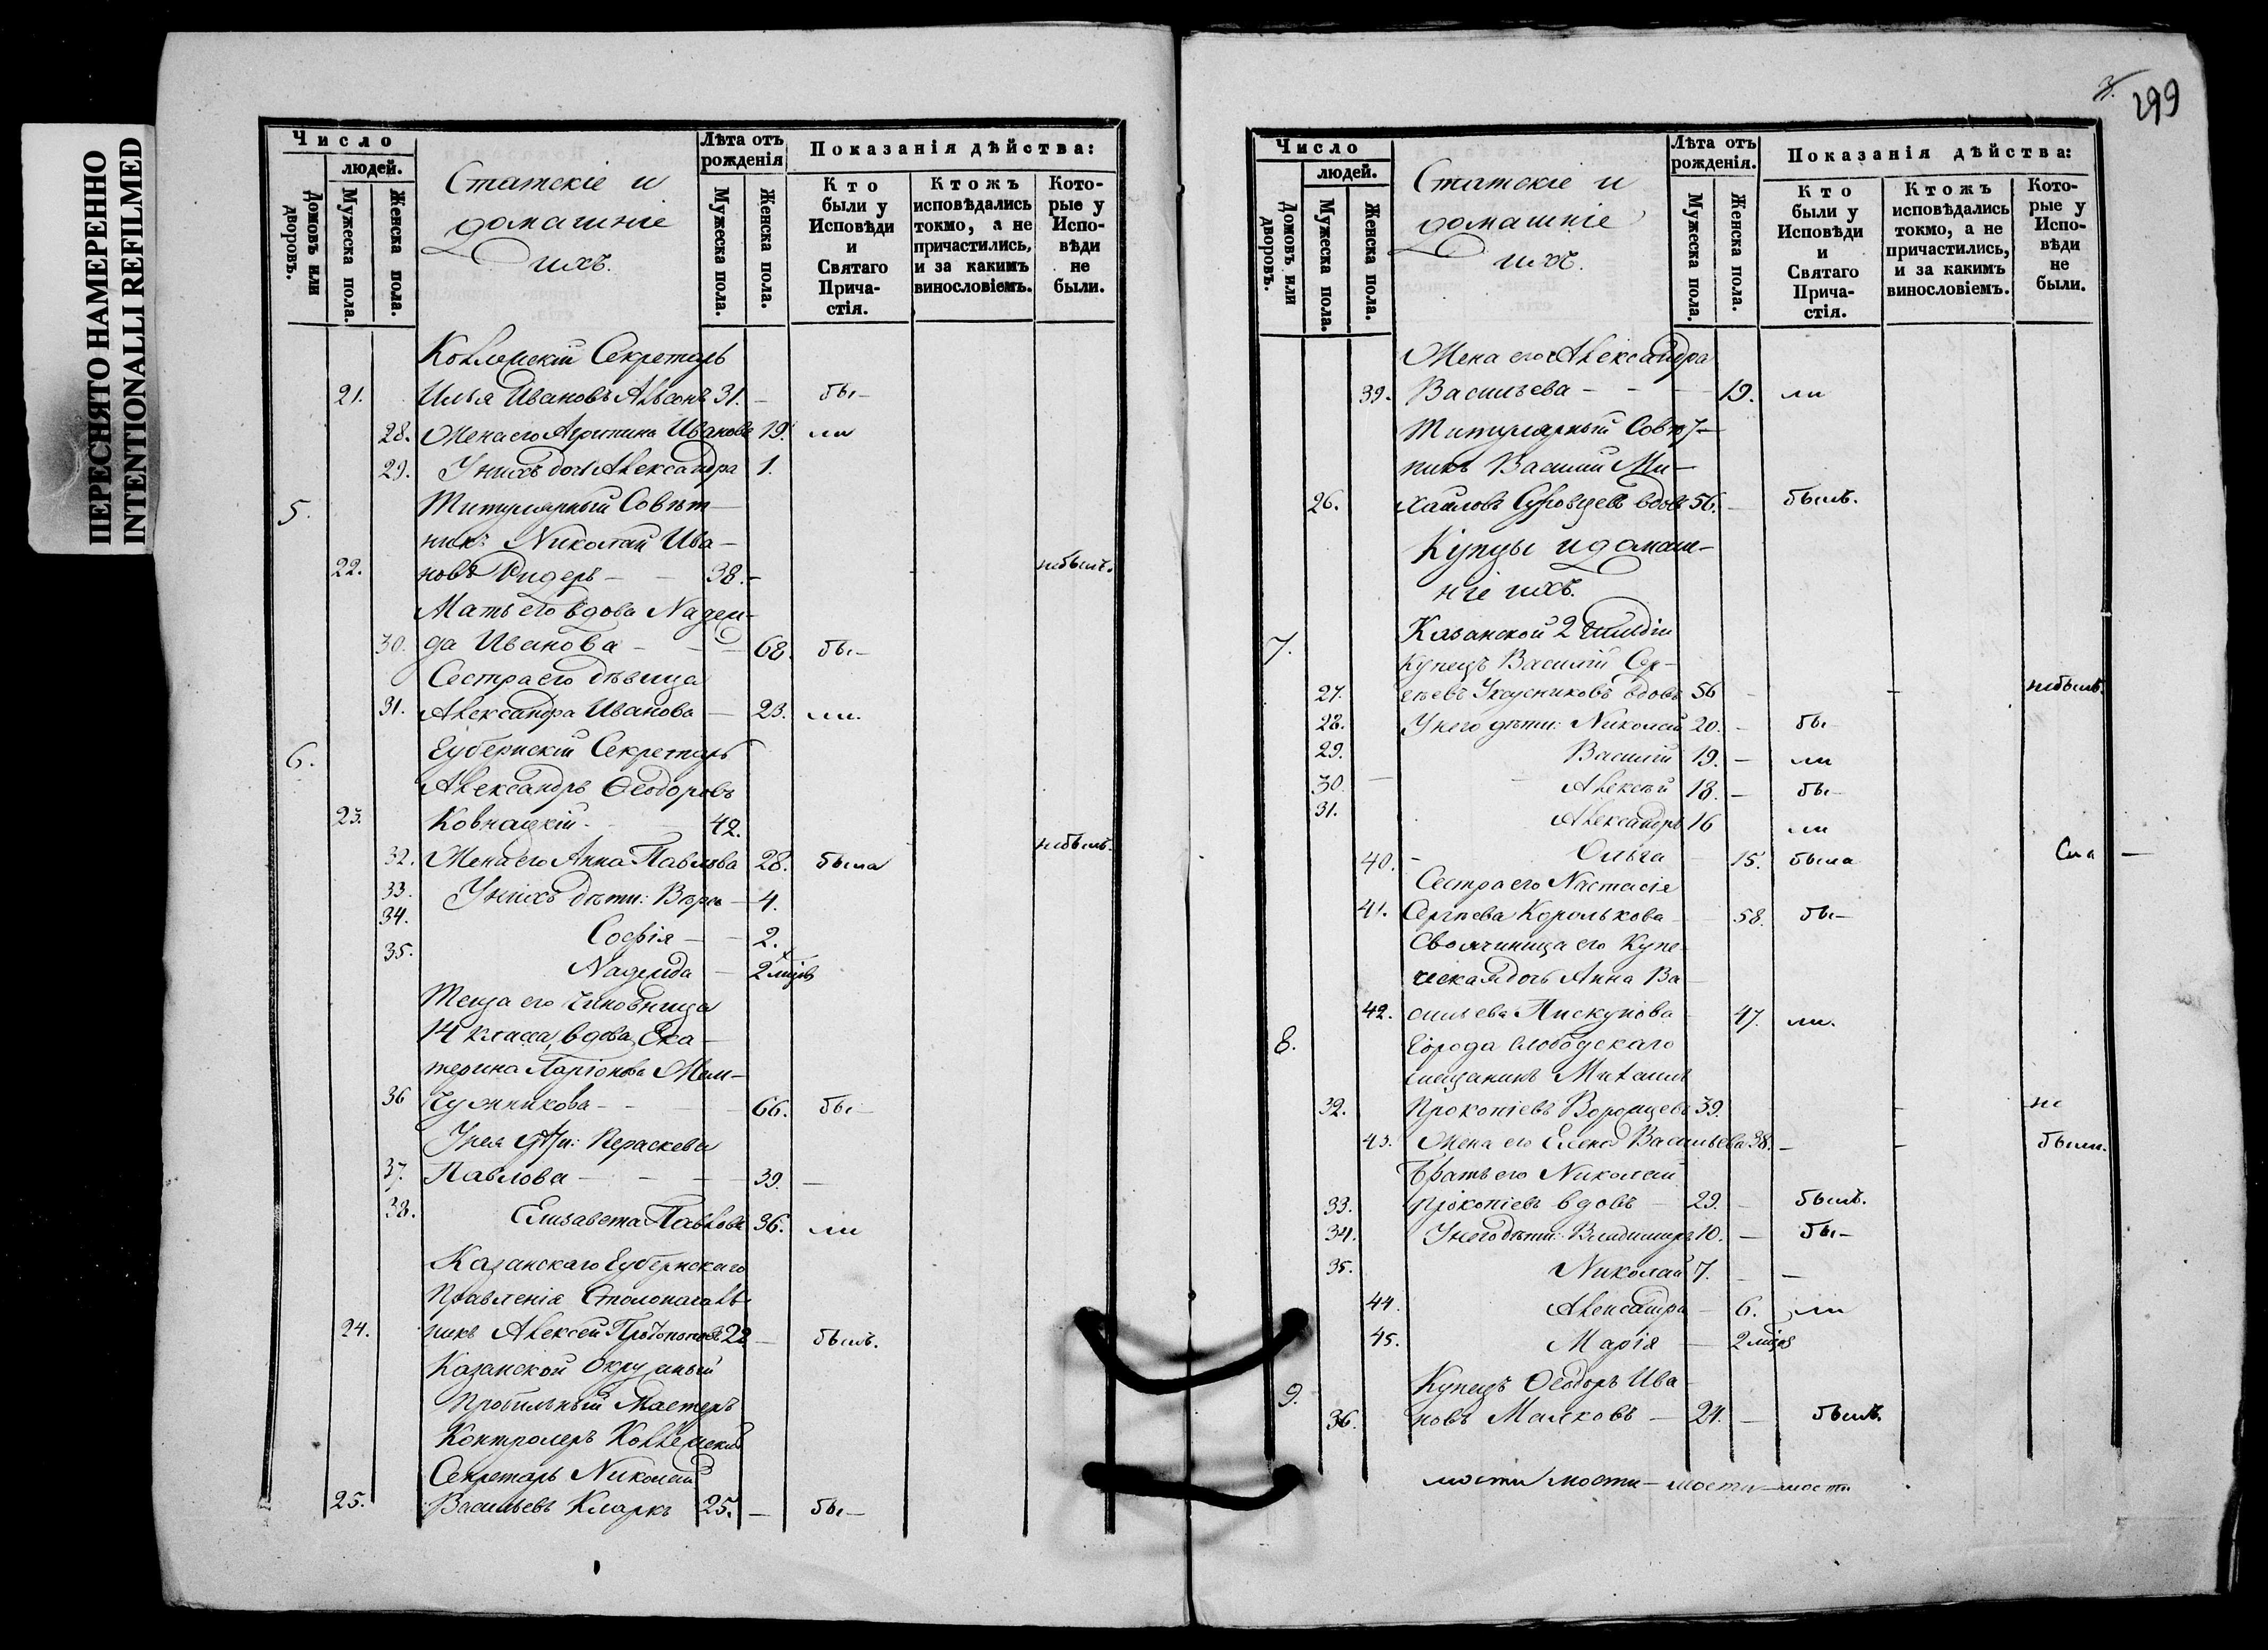 ПЕРЕСНЯТО НАМЕРЕННО
INTENTIONALLI REFILMED
Число
людей.
Домовъ или дворовъ.
Мужеска пола.
Женска пола.
Статскіе и
домашніе
ихъ.
Лѣта отъ рожденія
Мужеска пола.
Женска пола.
Показанія дѣйства:
Кто были у Исповѣди и Святаго Прича-стія.
Ктожъ исповѣдались токмо, а не причастились, и за какимъ винословіемъ.
Кото-рые у Испо-вѣди не были.
Коллежскій Секретарь
21. Илья Ивановъ 31. — бы-
28. Жена его Агрипина Иванова 19. ли
29. У нихъ дочь Александра 1.
5. Титулярный Совѣт-
никъ Николай Ива-
22. новъ Ридеръ — — 38. — небылъ.
Мать его вдова Надеж-
30. да Иванова — — — 68. бы-
Сестра его дѣвица
31. Александра Иванова — 23. ли.
6. Губернскій Секретарь
Александръ Ѳеодоровъ
23. Ковнацкій — 42. небылъ.
32. Жена его Анна Павлова 28. была
33. У нихъ дѣти: Вѣра — 4.
34. Софія — — 2.
35. Надежда — 2 мцѣ
Теща его Чиновница
14 класса, вдова Ека-
терина Ларіонова
36 66. бы-
У нея Параскева
37. Павлова — — — 39. —
38. Елизавета Павлова 36. ли
Казанскаго Губернскаго
Правленія Столоначаль-
24. никъ Алексей Протопоповъ 22 — былъ.
Казанской Окружный
Пробильный Мастеръ
Контролеръ Коллежскій
Секретарь Николай
25. Васильевъ Кларкъ 25. — бы-
299
Число
людей.
Домовъ или дворовъ.
Мужеска пола.
Женска пола.
Статскіе и
домашніе
ихъ.
Лѣта отъ рожденія.
Мужеска пола.
Женска пола.
Показанія дѣйства:
Кто были у Исповѣди и Святаго Прича-стія.
Ктожъ исповѣдались токмо, а не причастились, и за какимъ винословіемъ.
Кото-рые у Испо-вѣди не были.
Жена его Александра
39. Васильева — — — 19. ли
Титулярный Совѣт-
никъ Василій Ми-
26. хаиловъ вдовъ 56. — былъ.
Купцы и домаш-
ніе ихъ.
7. Казанской 2 гильдіи
купецъ Василій Сер-
27. гѣевъ Уксусниковъ вдовъ 56 — — небылъ.
28. У него дѣти: Николай 20. — бы-
29. Василій 19. — ли
30. Алексѣй 18. — бы-
31. Александръ 16 ли
40. Ольга 15. была
Сестра его Настасія
41. Сергѣева Королькова 58. бы-
Своячиница его Купе-
ческая дочь Анна Ва-
42. сильева Пискунова 47. ли.
8. Города Слободскаго
мещанинъ Михаилъ
32. Прокопіевъ Воронцевъ 39. — не
43. Жена его Елена Васильева 38. — — были.
Братъ его Николай
33. Прокопіевъ вдовъ — 29. — былъ.
34. У него дѣти: Владимиръ 10. — бы-
35. Николай 7. — —
44. Александра — 6. ли
45. Марія — 2 мцѣ
9. Купецъ Ѳеодоръ Ива-
36. новъ Маяковъ — 24. — былъ.
мости мости — мости — мости